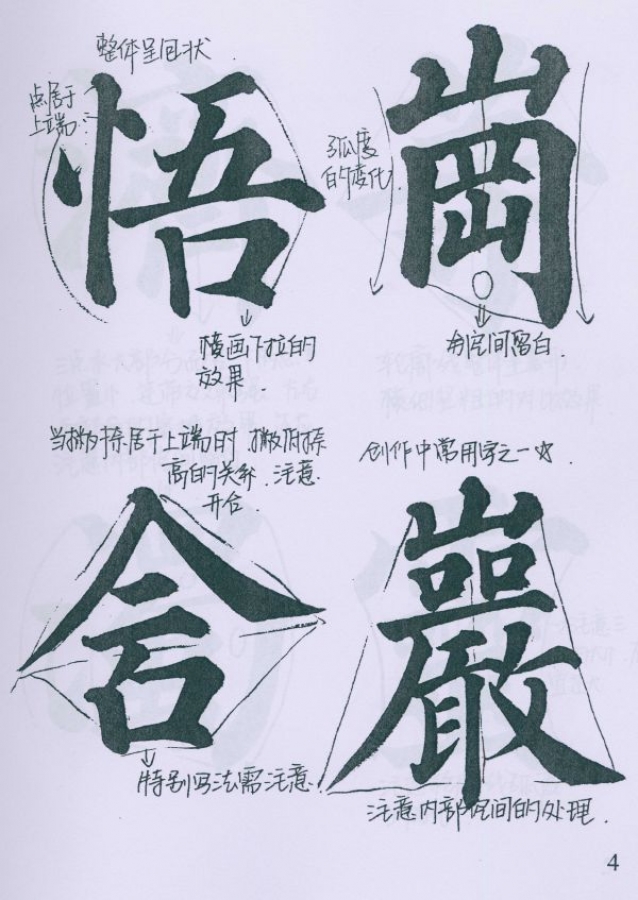 整体呈包状
点居于
上端
悟
横画下拉的
效果.
崗
弧度
的变化.
内空间留白.
当撇捺居于上端时.撇低捺
高的关系.注意
开合.
舍
特别写法需注意.
创作中常用字之一☆.
巖
注意内部空间的处理.
4